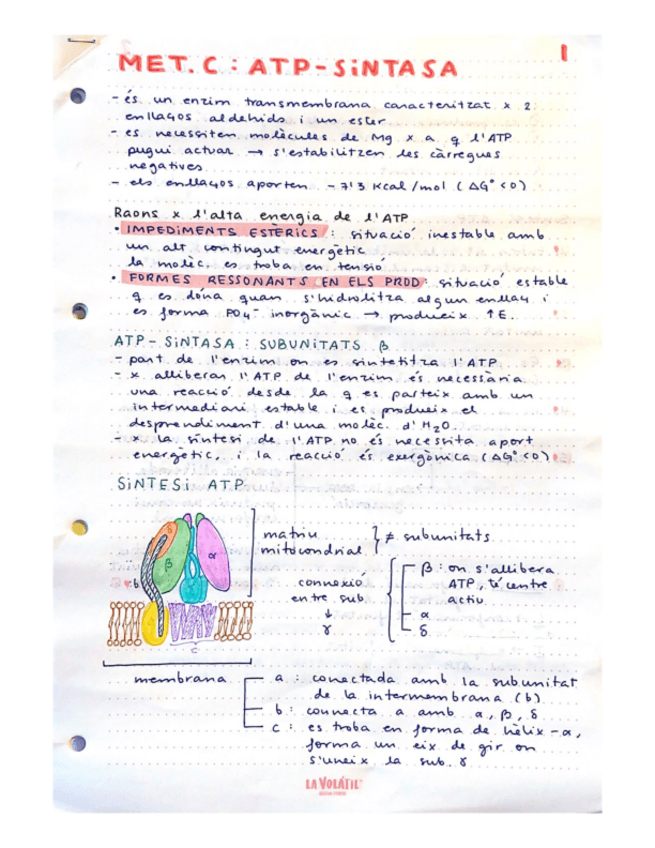 1
MET. C : ATP-SiNTASA
- és un enzim transmembrana caracteritzat x 2
enllaços aldehids i un ester
- es necessiten molècules de Mg x a q l'ATP
pugui actuar → s'estabilitzen les càrregues
negatives
- els enllaços aporten -7'3 Kcal/mol (ΔG° <0)
Raons x l'alta energia de l'ATP
• IMPEDIMENTS ESTÈRICS : situació inestable amb
un alt contingut energètic
la molèc. es troba en tensió
• FORMES RESSONANTS EN ELS PROD : situació estable
q es dóna quan s'hidrolitza algun enllaç i
es forma PO4- inorgànic → produeix ↑E.
ATP-SiNTASA : SUBUNITATS β
- part de l'enzim on es sintetitza l'ATP
- x alliberar l'ATP de l'enzim és necessària
una reacció desde la q es parteix amb un
intermediari estable i es produeix el
despreniment d'una molèc. d'H2O
- x la síntesi de l'ATP no és necessita aport
energètic, i la reacció és exergònica (ΔG° <0)
SíNTESi ATP
matriu
mitocondrial
} ≠ subunitats
δ
β
α
b
c
connexió
entre sub.
↓
γ
β : on s'allibera
ATP, té centre
actiu
α
δ
membrana
a : conectada amb la subunitat
de la intermembrana (b)
b : connecta a amb α, β, δ
c : es troba en forma de hèlix-α,
forma un eix de gir on
s'uneix la sub. γ
LA VOLÀTIL